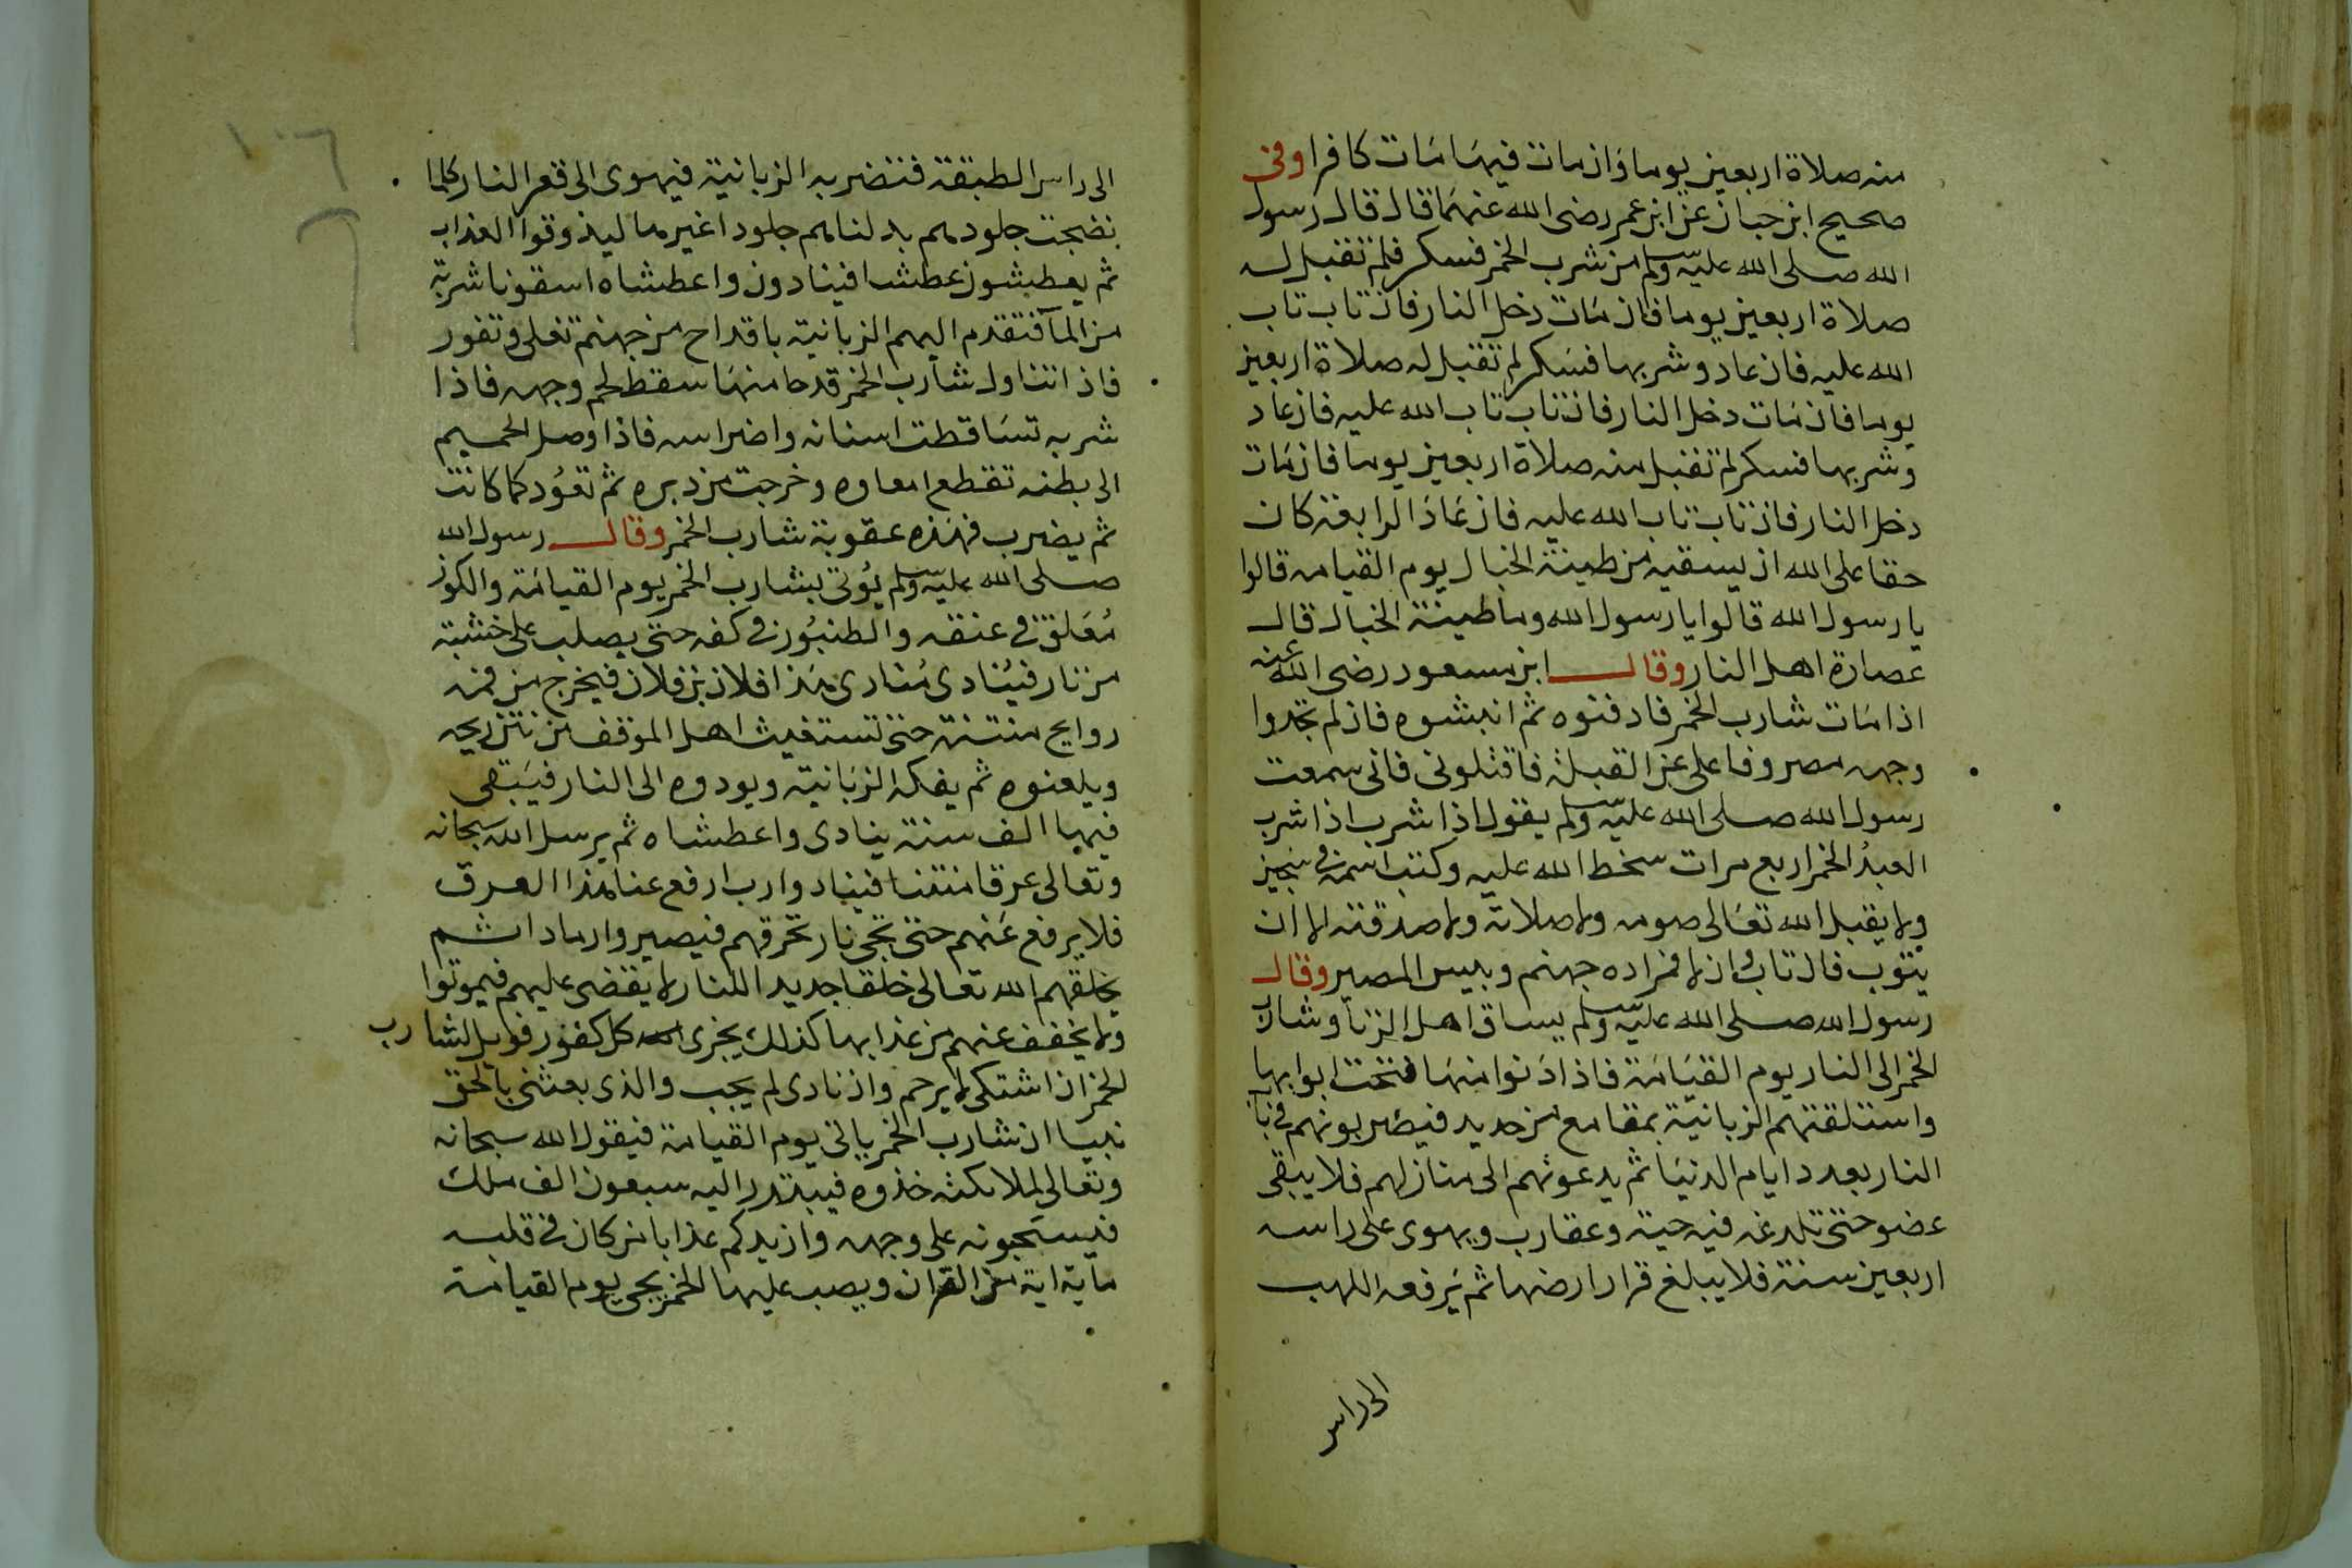 منه صلاة اربعين يوما وان مات فيها مات كافرا وفى
صحيح ابن حبان عن ابن عمر رضى الله عنهما قال قال رسول
الله صلى الله عليه وسلم من شرب الخمر فسكر فلم تقبل له
صلاة اربعين يوما فان مات دخل النار فان تاب تاب
الله عليه فان عاد وشربها فسكر لم تقبل له صلاة اربعين
يوما فان مات دخل النار فان تاب تاب الله عليه فان عاد
وشربها فسكر لم تقبل منه صلاة اربعين يوما فان مات
دخل النار فان تاب تاب الله عليه فان عاد الرابعة كان
حقا على الله ان يسقيه من طينة الخبال يوم القيامه قالوا
يا رسول الله قالوا يا رسول الله وما طينة الخبال قال
عصارة اهل النار وقال ابن مسعود رضى الله عنه
اذا مات شارب الخمر فادفنوه ثم انبشوه فان لم تجدوا
وجهه مصروفا على عن القبلة فاقتلونى فانى سمعت
رسول الله صلى الله عليه وسلم يقول اذا شرب اذا شرب
العبد الخمر اربع مرات سخط الله عليه وكتب اسمه فى سجين
ولا يقبل الله تعالى صومه ولا صلاته ولا صدقته الا ان
يتوب فان تاب وان لا فمراده جهنم وبيس المصير وقال
رسول الله صلى الله عليه وسلم يساق اهل الزنا وشارب
الخمر الى النار يوم القيامة فاذا دنوا منها فتحت ابوابها
واستلقتهم الزبانية بمقامع من حديد فيضربونهم فى باب
النار بعدد ايام الدنيا ثم يدعونهم الى منازلهم فلا يبقى
عضو حتى تلدغه فيه حية وعقارب ويهوى على راسه
اربعين سنة فلا يبلغ قرار ارضها ثم يرفعه اللهب
الى راس
١٠٦
الى راس الطبقة فتضربه الزبانية فيهوى الى قعر النار كلما
نضجت جلودهم بدلناهم جلودا غيرها ليذوقوا العذاب
ثم يعطشون عطشا فينادون واعطشاه اسقونا شربة
من المآ فتقدم اليهم الزبانية باقداح من جهنم تغلى وتفور
فاذا تناول شارب الخمر قدحا منها سقط لحم وجهه فاذا
شربه تساقطت اسنانه واضراسه فاذا وصل الحميم
الى بطنه تقطع امعاوه وخرجت من دبره ثم تعود كما كانت
ثم يضرب فهذه عقوبة شارب الخمر وقال رسول الله
صلى الله عليه وسلم يوتى بشارب الخمر يوم القيامة والكوز
معلق فى عنقه والطنبور فى كفه حتى يصلب على خشبة
من نار فينادى منادى هذا فلان بن فلان فيخرج من فمه
روايح منتنة حتى تستغيث اهل الموقف من نتن ريحه
ويلعنوه ثم يفكه الزبانية ويودوه الى النار فيبقى
فيها الف سنة ينادى واعطشاه ثم يرسل الله سبحانه
وتعالى عرقا منتنا فينادوا رب ارفع عنا هذا العرق
فلا يرفع عنهم حتى تجى نار تحرقهم فيصيروا رمادا ثم
يخلقهم الله تعالى خلقا جديدا للنار لا يقضى عليهم فيموتوا
ولا يخفف عنهم من عذابها كذلك يجزى كل كفور فويل لشارب
الخمر ان اشتكى لا يرحم وان نادى لم يجب والذى بعثنى بالحق
نبيا ان شارب الخمر ياتى يوم القيامة فيقول الله سبحانه
وتعالى لملائكته خذوه فيبتدر اليه سبعون الف ملك
فيسحبونه على وجهه وازيدكم عذابا من كان فى قلبه
ماية اية من القران ويصب عليها الخمر يجى يوم القيامة